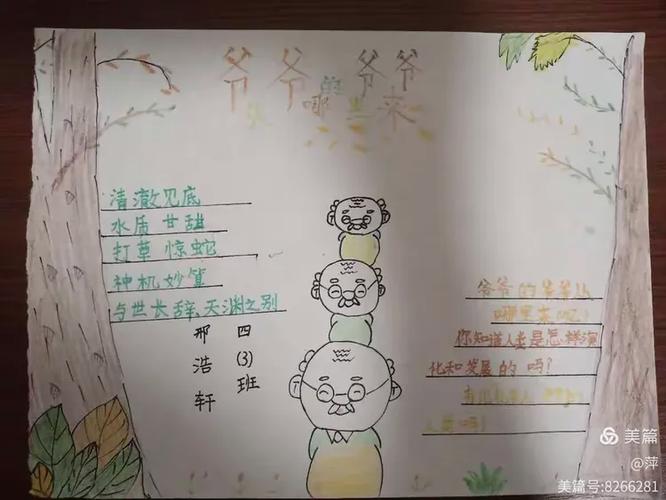 爷爷的爷爷
从哪里来
清澈见底
水质甘甜
打草惊蛇
神机妙算
与世长辞、天渊之别
四(3)班
邢浩轩
爷爷的爷爷从
哪里来呢？
你知道人类是怎样演
化和发展的吗？
人类吗！
美篇
@萍
美篇号:8266281